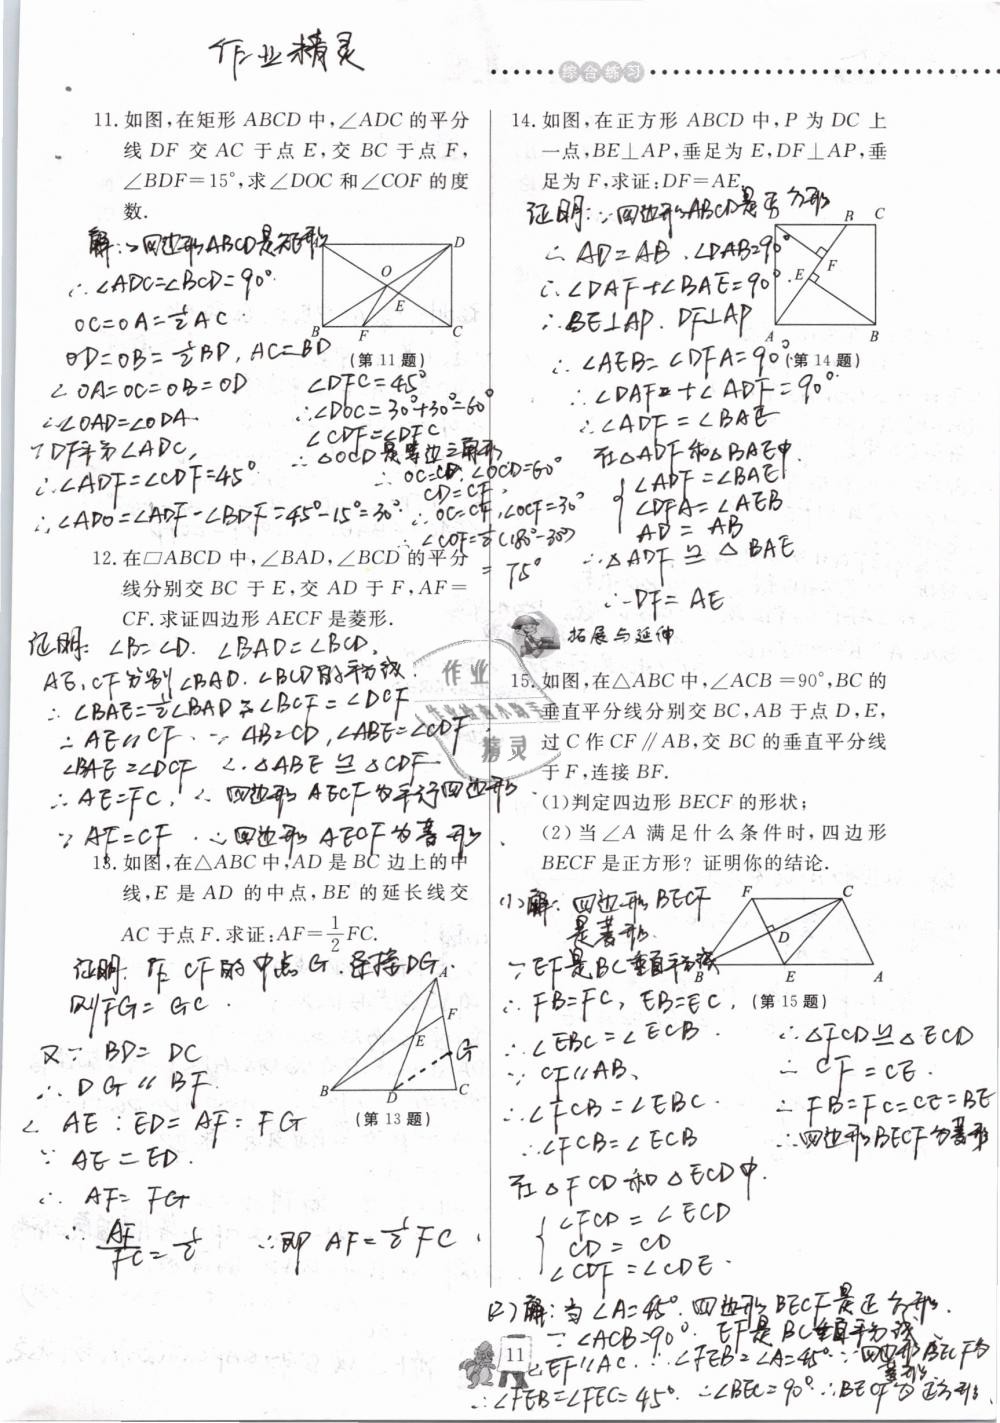 作业精灵
综合练习
11. 如图,在矩形 ABCD 中,∠ADC 的平分
线 DF 交 AC 于点 E,交 BC 于点 F,
∠BDF=15°,求∠DOC 和∠COF 的度
数.
解:∵四边形ABCD是矩形
∴∠ADC=∠BCD=90°
OC=OA=½AC
OD=OB=½BD, AC=BD
∴ OA=OC=OB=OD
∴∠OAD=∠ODA
∵DF平分∠ADC,
∴∠ADF=∠CDF=45°
∴∠ADO=∠ADF-∠BDF=45°-15°=30°
D
O
E
B
F
C
(第 11 题)
∠DFC=45°
∴∠DOC=30°+30°=60°
∠CDF=∠DFC
∴△OCD是等边三角形
∴OC=CD.∠OCD=60°
CD=CF,
∴OC=CF,∠OCF=30°
∴∠COF=½(180°-30°)
=75°
12. 在▱ABCD 中,∠BAD,∠BCD 的平分
线分别交 BC 于 E,交 AD 于 F,AF=
CF.求证四边形 AECF 是菱形.
证明: ∠B=∠D. ∠BAD=∠BCD,
AE,CF分别∠BAD.∠BCD的平分线.
∴∠BAE=½∠BAD ∠BCF=∠DCF
∴AE∥CF. ∵AB=CD,∠ABE=∠CDF
∠BAE=∠DCF ∴△ABE≌△CDF
∴AE=FC, ∴四边形AECF为平行四边形
∵AF=CF.∴四边形AECF为菱形.
13. 如图,在△ABC中,AD 是 BC 边上的中
线,E 是 AD 的中点,BE 的延长线交
AC 于点 F.求证:AF=½FC.
证明: 作CF的中点G.连接DG.
则FG=GC.
又∵ BD=DC
∴DG∥BF
∴ AE:ED=AF:FG
∵ AE=ED.
∴ AF=FG
∴ AF/FC=½ ∴即 AF=½FC.
A
F
E
G
B
D
C
(第 13 题)
14. 如图,在正方形 ABCD 中,P 为 DC 上
一点,BE⊥AP,垂足为 E,DF⊥AP,垂
足为 F,求证:DF=AE.
证明:∵四边形ABCD是正方形
∴ AD=AB.∠DAB=90°
∴∠DAF+∠BAE=90°
∵BE⊥AP.DF⊥AP
∴∠AEB=∠DFA=90°
∴∠DAF+∠ADF=90°
∴∠ADF=∠BAE
在△ADF和△BAE中.
∠ADF=∠BAE
∠DFA=∠AEB
AD=AB
∴△ADF≌△BAE
∴DF=AE
C
F
E
A
B
(第 14 题)
拓展与延伸
15. 如图,在△ABC 中,∠ACB=90°,BC 的
垂直平分线分别交 BC,AB 于点 D,E,
过 C 作 CF∥AB,交 BC 的垂直平分线
于 F,连接 BF.
(1)判定四边形 BECF 的形状;
(2)当∠A 满足什么条件时,四边形
BECF 是正方形?证明你的结论.
(1)解:四边形BECF
是菱形.
∵EF是BC垂直平分线
∴FB=FC, EB=EC,
∴∠EBC=∠ECB.
∵CF∥AB,
∴∠FCB=∠EBC.
∴∠FCB=∠ECB
在△FCD和△ECD中.
∠FCD=∠ECD
CD=CD
∠CDF=∠CDE.
F
C
D
B
E
A
(第 15 题)
∴△FCD≌△ECD
∴CF=CE.
∴FB=FC=CE=BE
∴四边形BECF为菱形
(2)解:当∠A=45°.四边形BECF是正方形.
∵∠ACB=90°.EF是BC垂直平分线.
∴EF∥AC.∴∠FEB=∠A=45°∵四边形BECF为
菱形
∴∠FEB=∠FEC=45°.∴∠BEC=90°.∴BECF为正方形.
作业
精灵
11